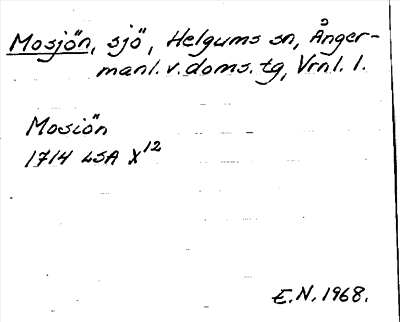 Mosjön, sjö, Helgums sn, Ånger-
manl. v. doms. tg, Vrnl. l.
Mosiön
1714 LSA X12
E.N. 1968.